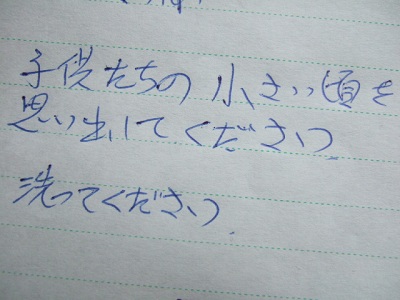 子供たちの小さい頃を
思い出してください
洗ってください